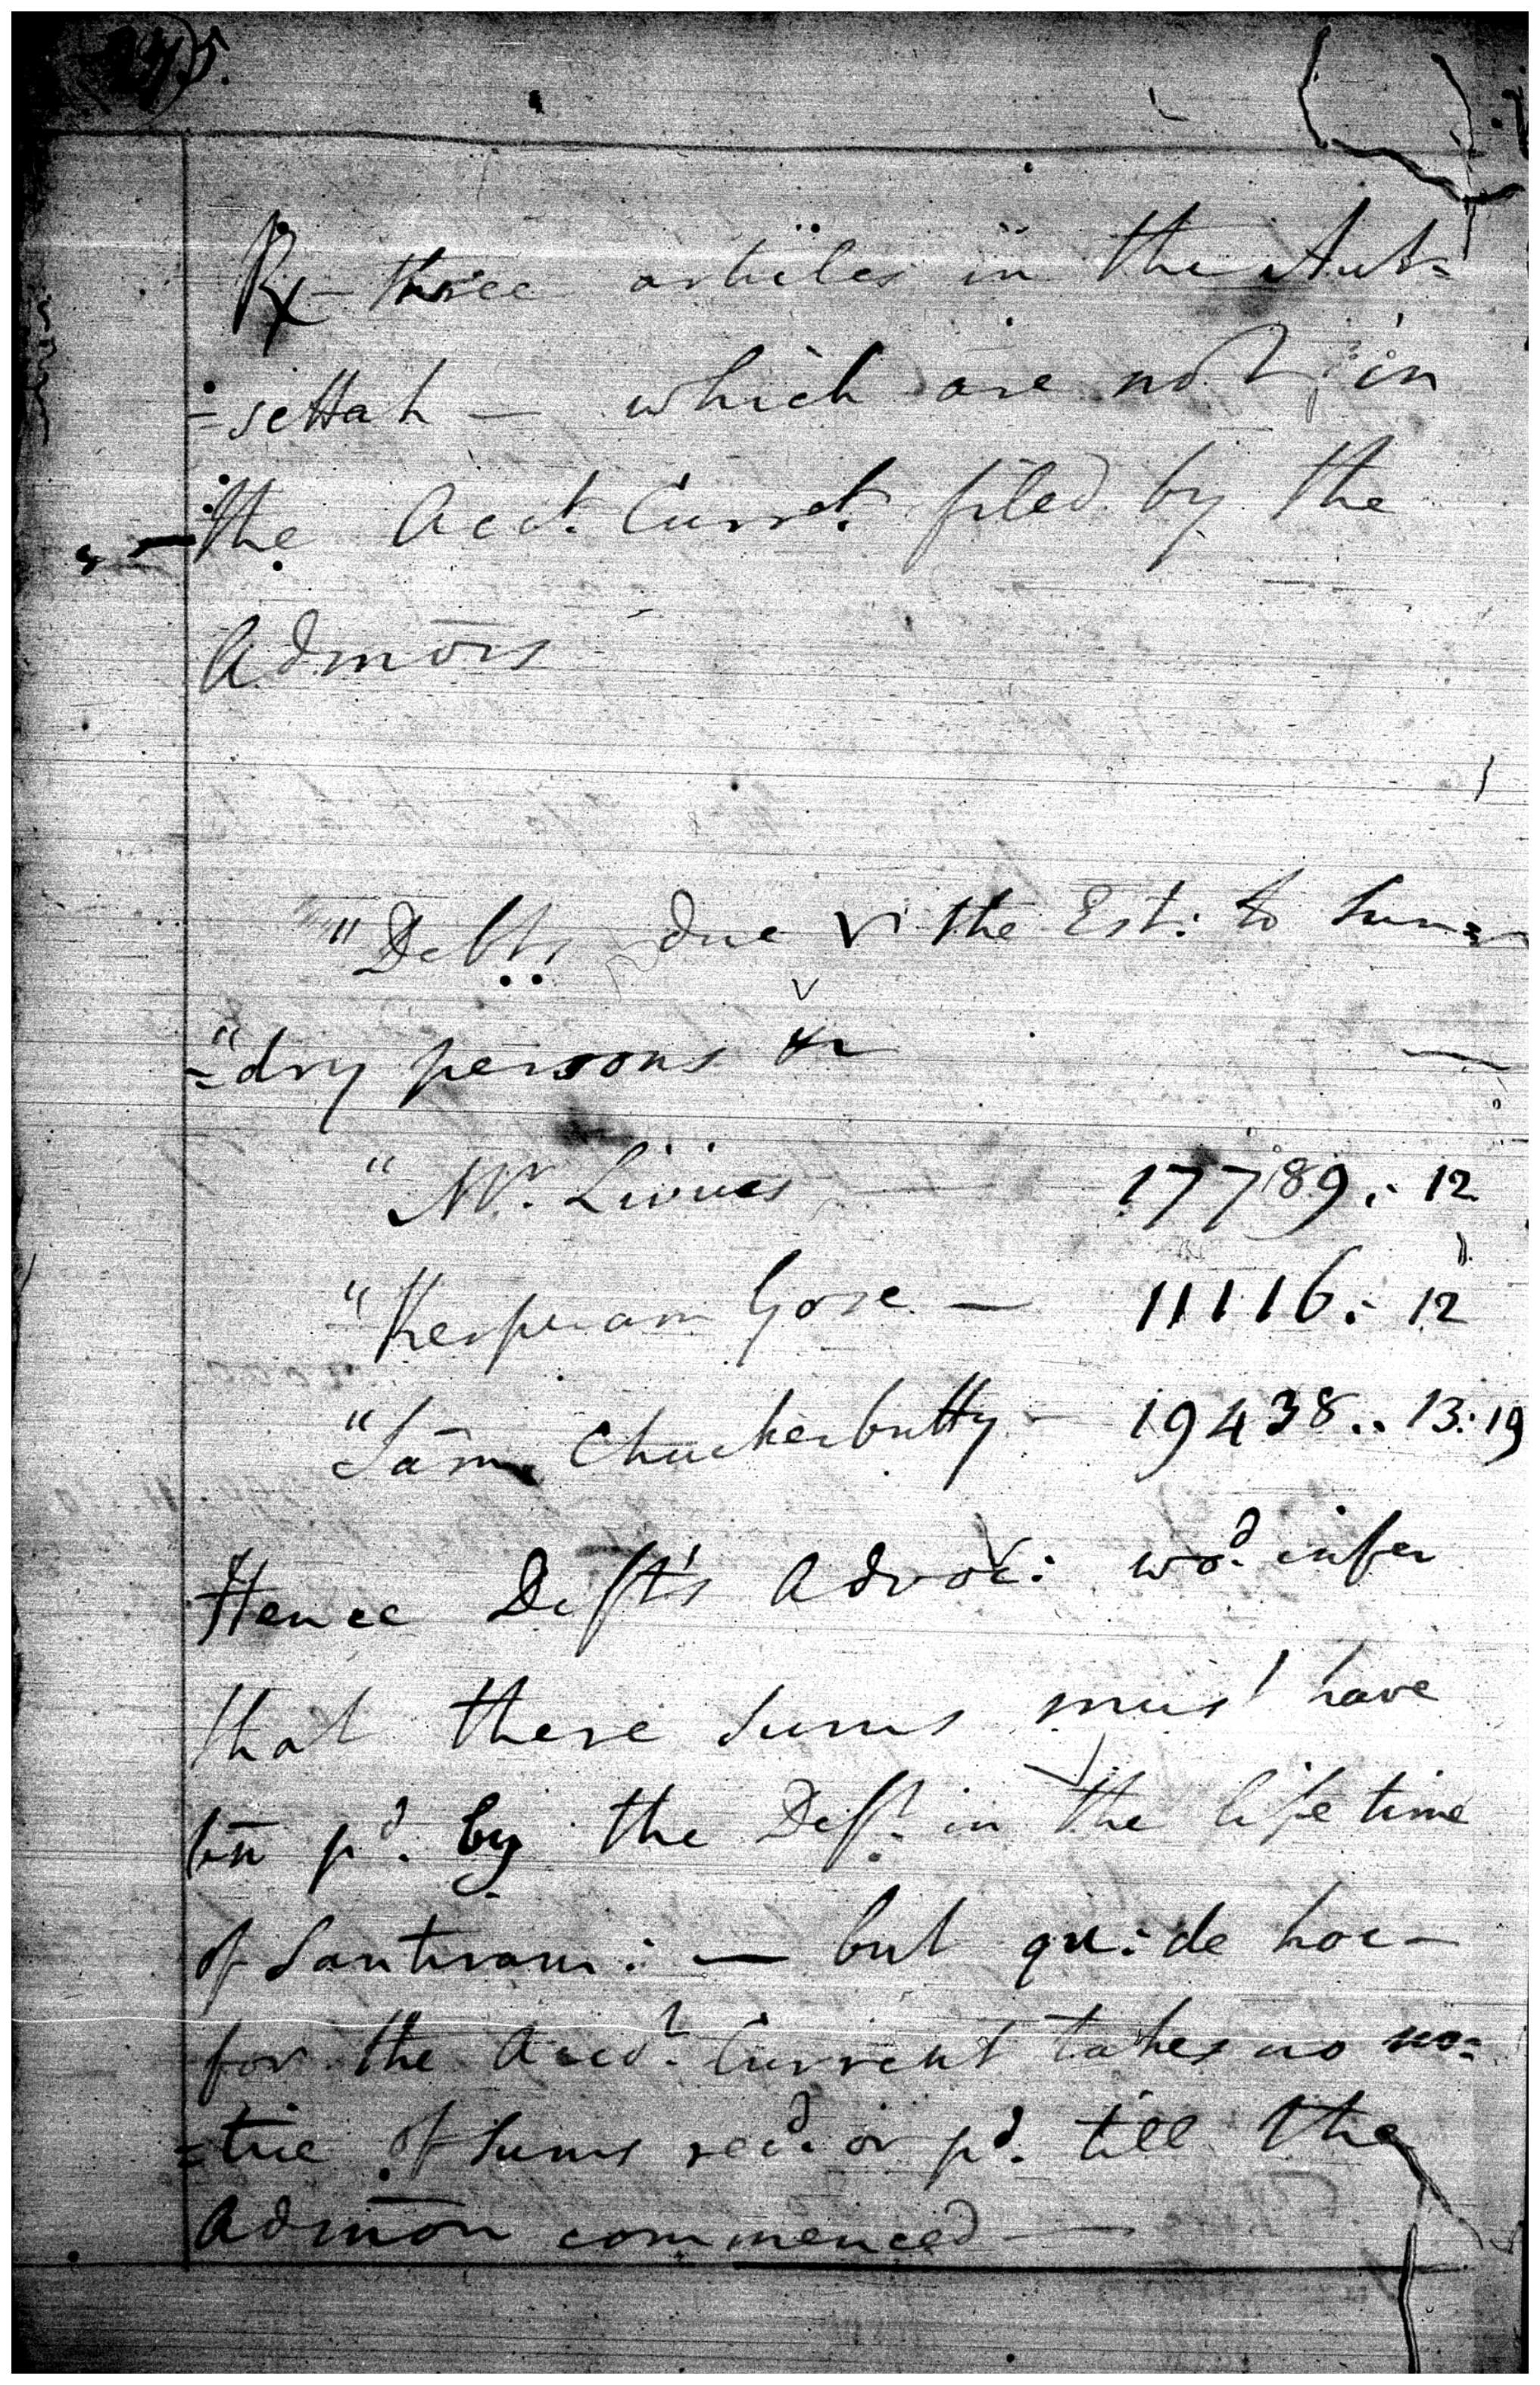 Rx - three articles in the Aut=
=settah — which are not in
the Acct. Currt. filed by the
Admors
"Debts due the Est: to Sun=
="dry persons &c
"Mr. Livius — 17789 : 12
" Gose — 11116 : 12
"Sam Chuckerbutty — 19438 .. 13 : 19
Hence Deft's Advoc: wod. infer
that these sums must have
bn pd. by the Deft. in the life time
of Santiram : — but qu: de hoc —
for the Accot. Current takes no no=
=tice of sums recd. or pd. till the
Admon commenced —